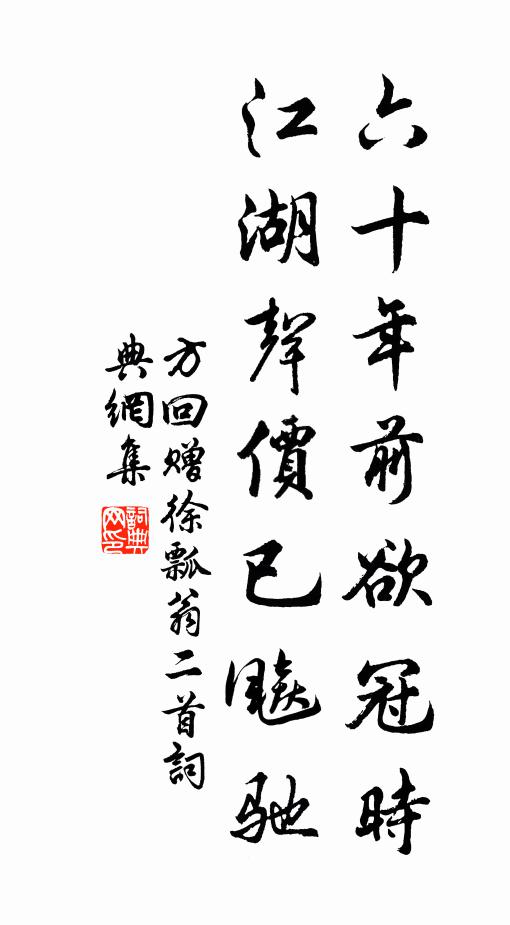 六十年前欲冠時
江湖聲價已飈馳
方回贈徐瓢翁二首詞
典網集
詞典
网印